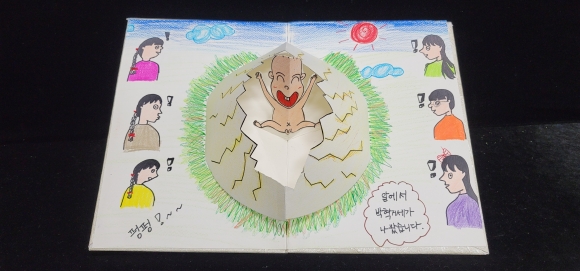 펑펑!~~
알에서
박혁거세가
나왔습니다.